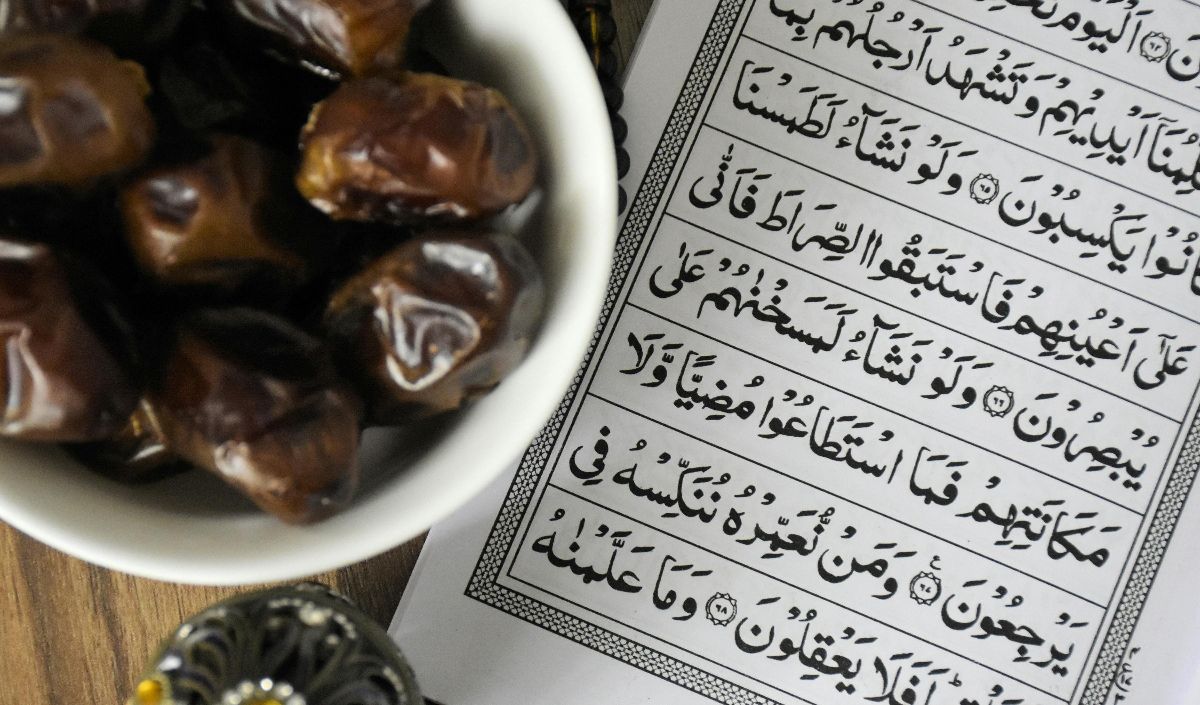 اَلْيَوْمَ
اَيْدِيْهِمْ وَتَشْهَدُ اَرْجُلُهُمْ بِمَا
كَانُوْا يَكْسِبُوْنَ ٦٥ وَلَوْ نَشَآءُ لَطَمَسْنَا
عَلٰٓى اَعْيُنِهِمْ فَاسْتَبَقُوا الصِّرَاطَ فَاَنّٰى
يُبْصِرُوْنَ ٦٦ وَلَوْ نَشَآءُ لَمَسَخْنٰهُمْ عَلٰى
مَكَانَتِهِمْ فَمَا اسْتَطَاعُوْا مُضِيًّا وَّلَا
يَرْجِعُوْنَ ٦٧ وَمَنْ نُّعَمِّرْهُ نُنَكِّسْهُ فِى
اَفَلَا يَعْقِلُوْنَ ٦٨ وَمَا عَلَّمْنٰهُ